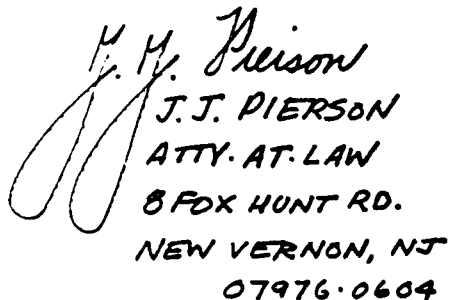 J. J. Pierson
J.J. PIERSON
ATTY. AT. LAW
8 FOX HUNT RD.
NEW VERNON, NJ
07976.0604